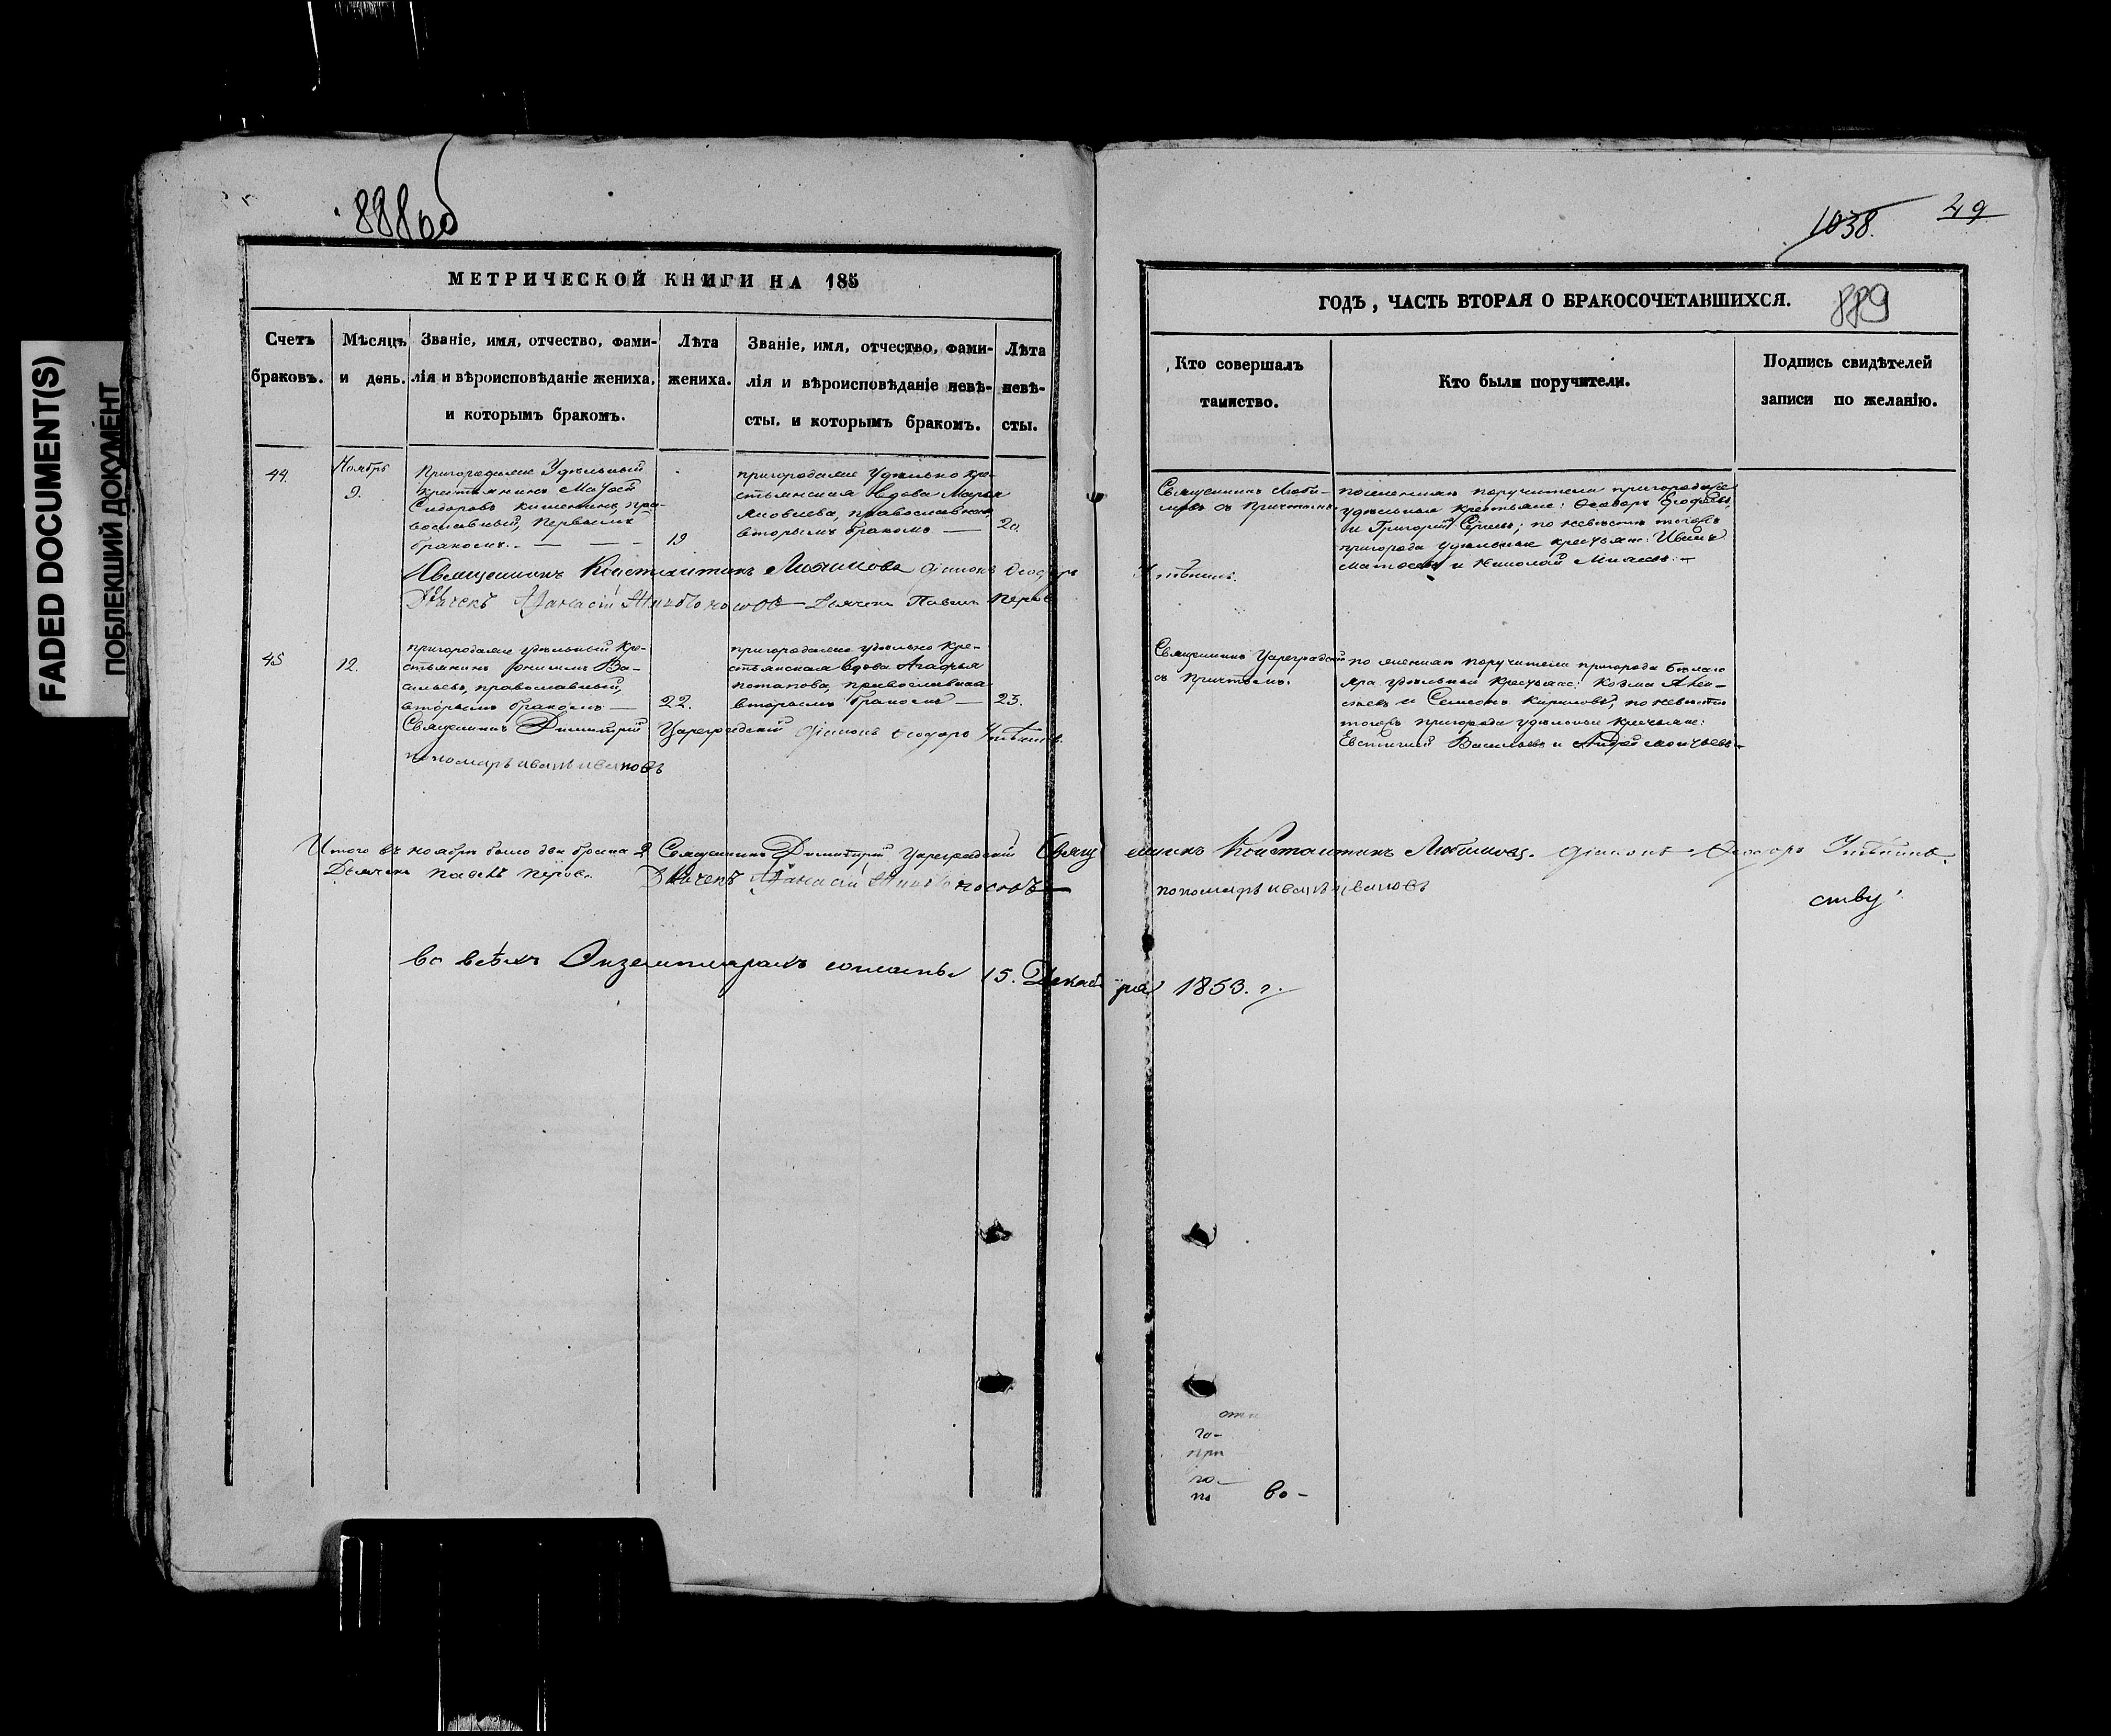 FADED DOCUMENT(S)
ПОБЛЕКШИЙ ДОКУМЕНТ
888об
1038.
49
МЕТРИЧЕСКОЙ КНИГИ НА 185
ГОДЪ, ЧАСТЬ ВТОРАЯ О БРАКОСОЧЕТАВШИХСЯ.
889
Счетъ
браковъ.
Мѣсяцъ
и день.
Званіе, имя, отчество, фами-
лія и вѣроисповѣданіе жениха,
и которымъ бракомъ.
Лѣта
жениха.
Званіе, имя, отчество, фами-
лія и вѣроисповѣданіе невѣ-
сты, и которымъ бракомъ.
Лѣта
невѣ-
сты.
Кто совершалъ
таинство.
Кто были поручители.
Подпись свидѣтелей
записи по желанію.
44.
Ноябрь
9.
Пригорода Удѣльный
крестьянинъ
Сидоровъ пра-
вославный, первымъ
бракомъ. —
19
пригорода удѣльно кре-
стьянская вдова Марья
Яковлева, православная
вторымъ бракомъ —
20.
Священникъ Люби-
мовъ съ Причтомъ.
по женихѣ поручители пригорода
удѣльные крестьяне: Ѳеодоръ
и Григорій Сергѣевъ; по невѣстѣ тогожъ
пригорода удѣльные крестьяне: Иванъ
и Николай
Священникъ Константинъ Любимовъ Діаконъ Ѳеодоръ
Дьячекъ Аѳанасій Дьячекъ Павелъ Перов
45
12.
пригорода удѣльный кре-
стьянинъ Ва-
сильевъ, православный,
вторымъ бракомъ —
22.
пригорода удѣльно кре-
стьянская вдова Агафья
потапова, православная
вторымъ бракомъ —
23.
Священникъ Цареградскій
съ Причтомъ.
по женихѣ поручители пригорода Бѣлаго
яра удѣльные крестьяне: Козма Алек-
сѣевъ и Семенъ Кириловъ, по невѣстѣ
тогожъ пригорода удѣльные крестьяне:
Евстигней Васильевъ и Андрей
Священникъ Димитрій Цареградскій Діаконъ Ѳеодоръ
пономарь иванъ ивановъ
Итого въ ноябрѣ было два брака 2 Священникъ Димитрій Цареградскій Священникъ Константинъ Любимовъ. Діаконъ Ѳеодоръ
Дьячекъ Павелъ Перов. Дьячекъ Аѳанасій пономарь иванъ ивановъ
ству
во всѣхъ Экземплярахъ согласны 15. Декабря 1853. г.
го-
при
го-
по
во-